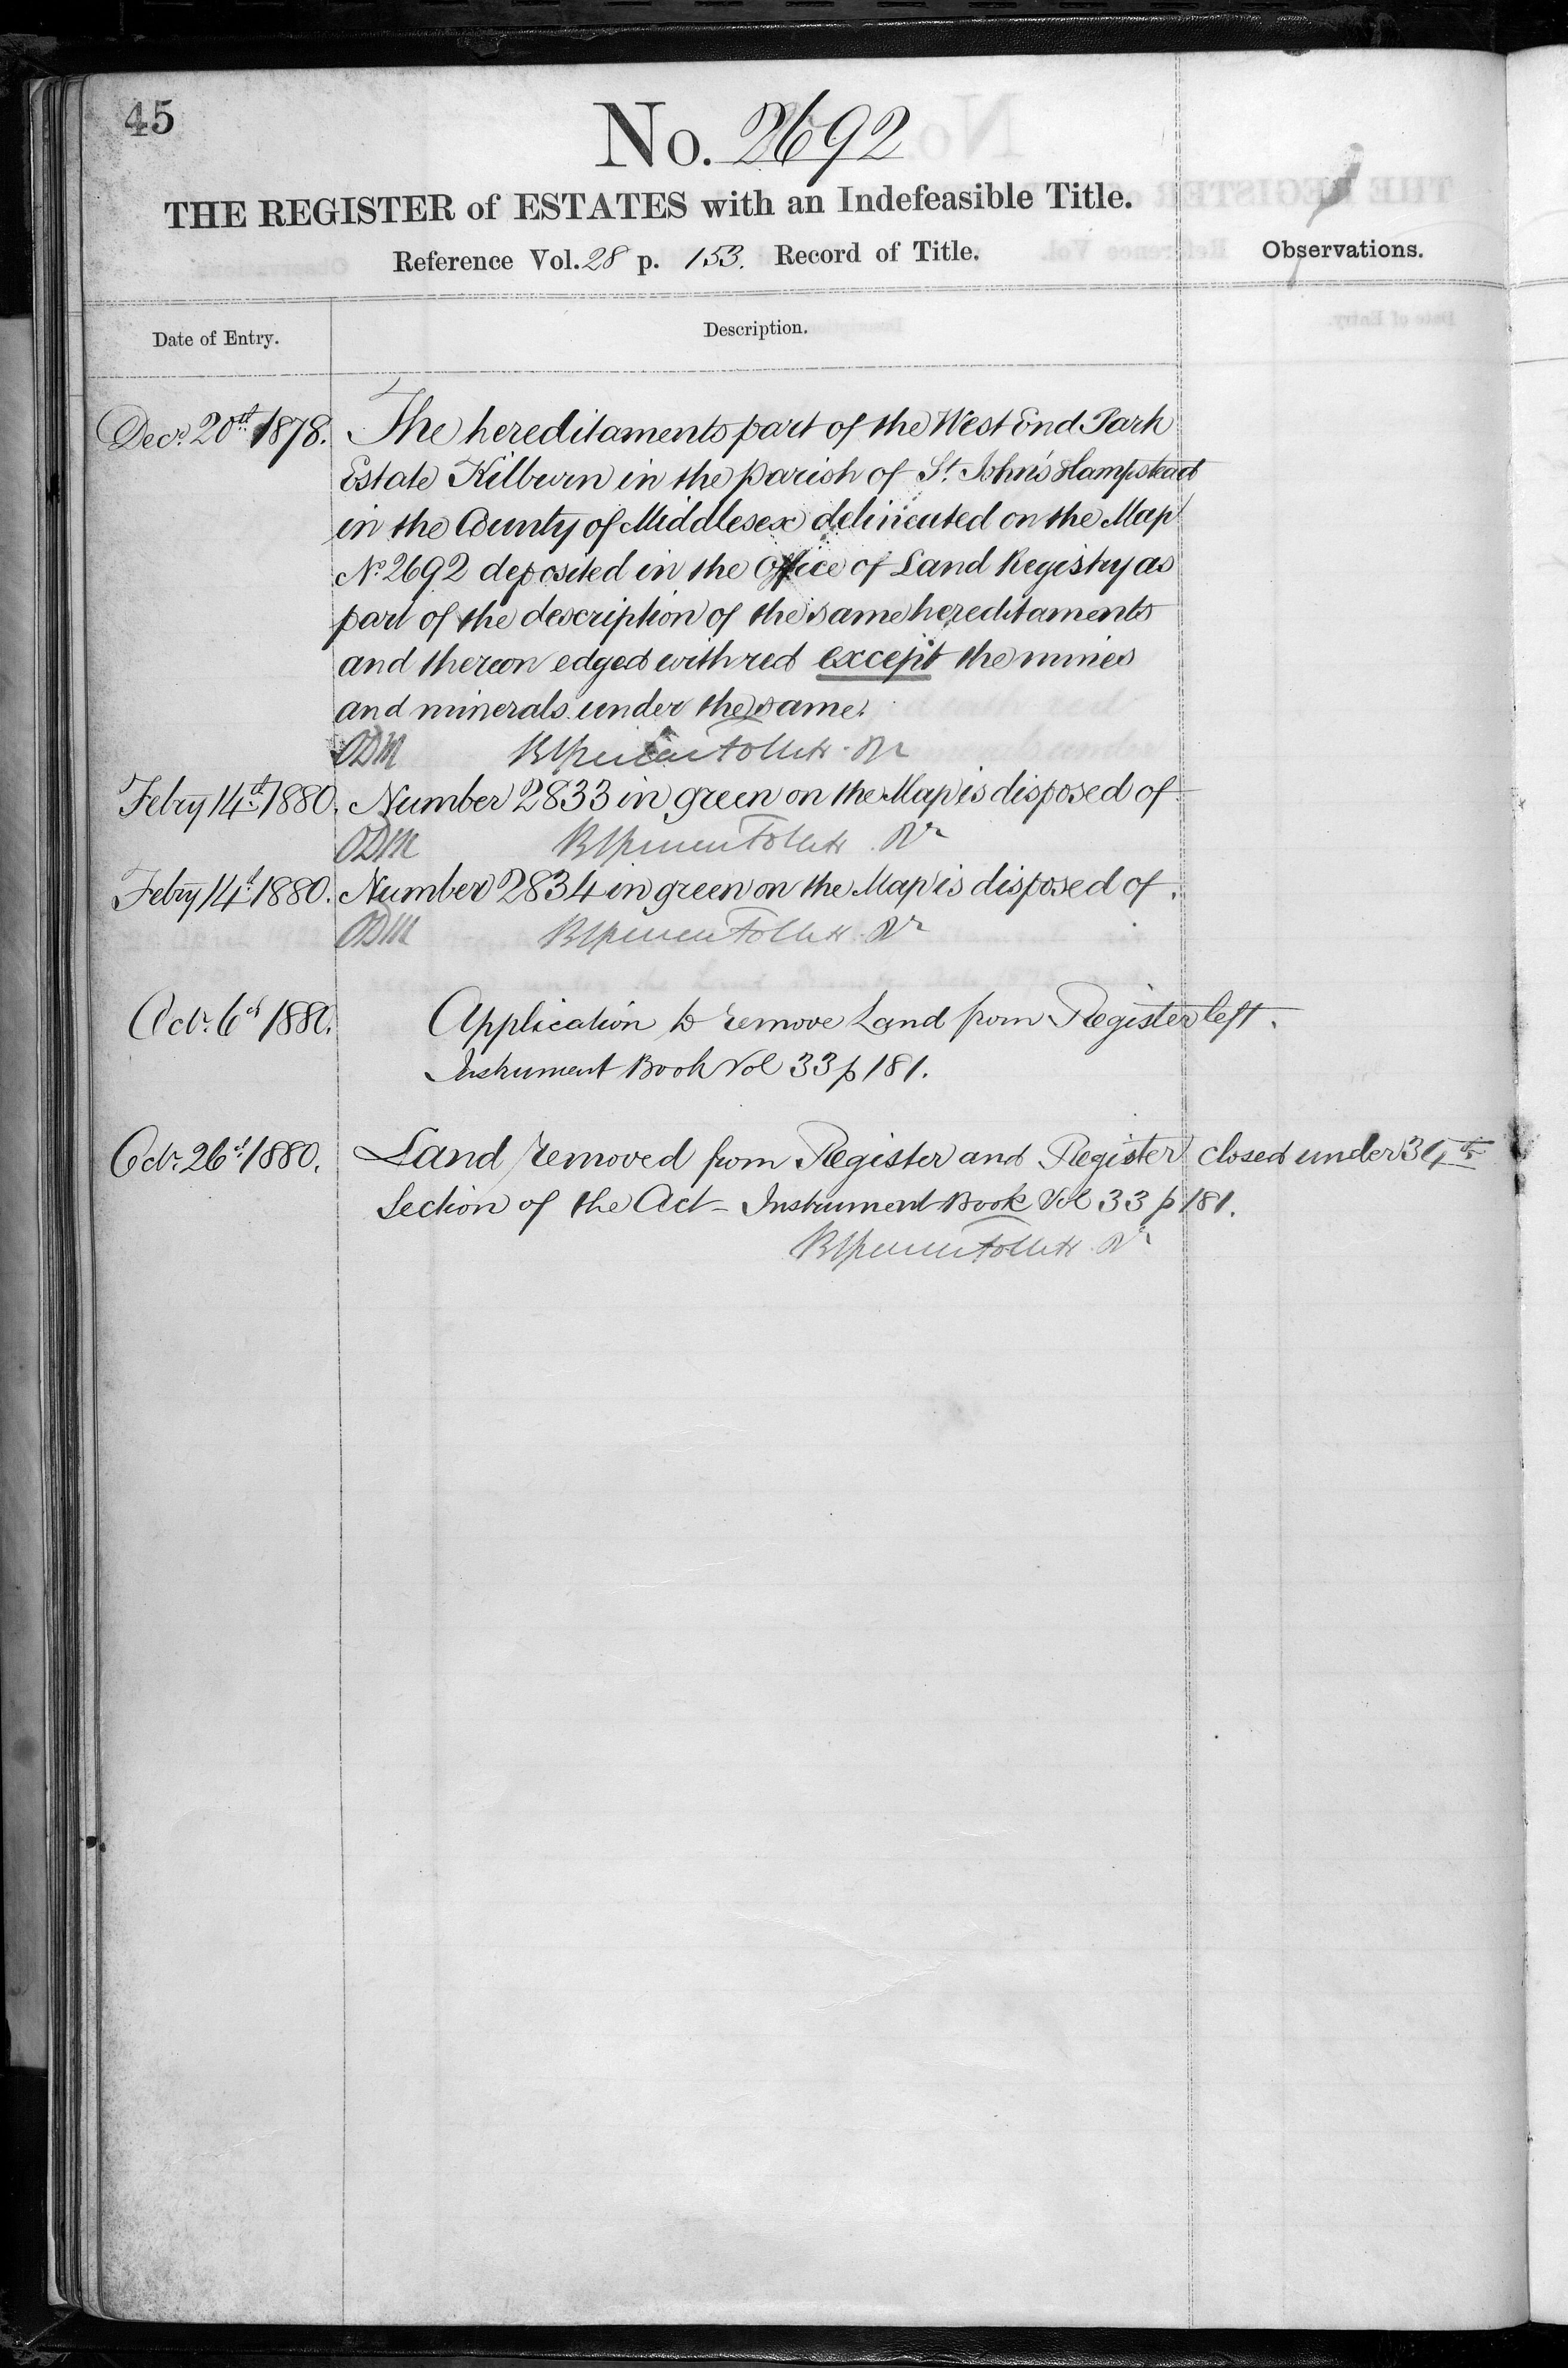 45
No. 2692
THE REGISTER of ESTATES with an Indefeasible Title.
Reference Vol. 28 p. 153. Record of Title.
Observations.
Date of Entry.
Description.
Decr. 20th 1878. The hereditaments part of the West End Park
Estate Kilburn in the parish of St. John's Hampstead
in the County of Middlesex delineated on the Map
No. 2692 deposited in the Office of Land Registry as
part of the description of the same hereditaments
and thereon edged with red except the mines
and minerals under the same.
ODM Follett Rr
Febry 14th 1880. Number 2833 in green on the Map is disposed of
ODM Follett Rr
Febry 14th 1880. Number 2834 in green on the Map is disposed of.
ODM Follett Rr
Octr. 6th 1880. Application to remove Land from Register left.
Instrument Book Vol 33 p 181.
Octr. 26th 1880. Land removed from Register and Register closed under 34th
Section of the Act - Instrument Book Vol 33 p 181.
Follett Rr